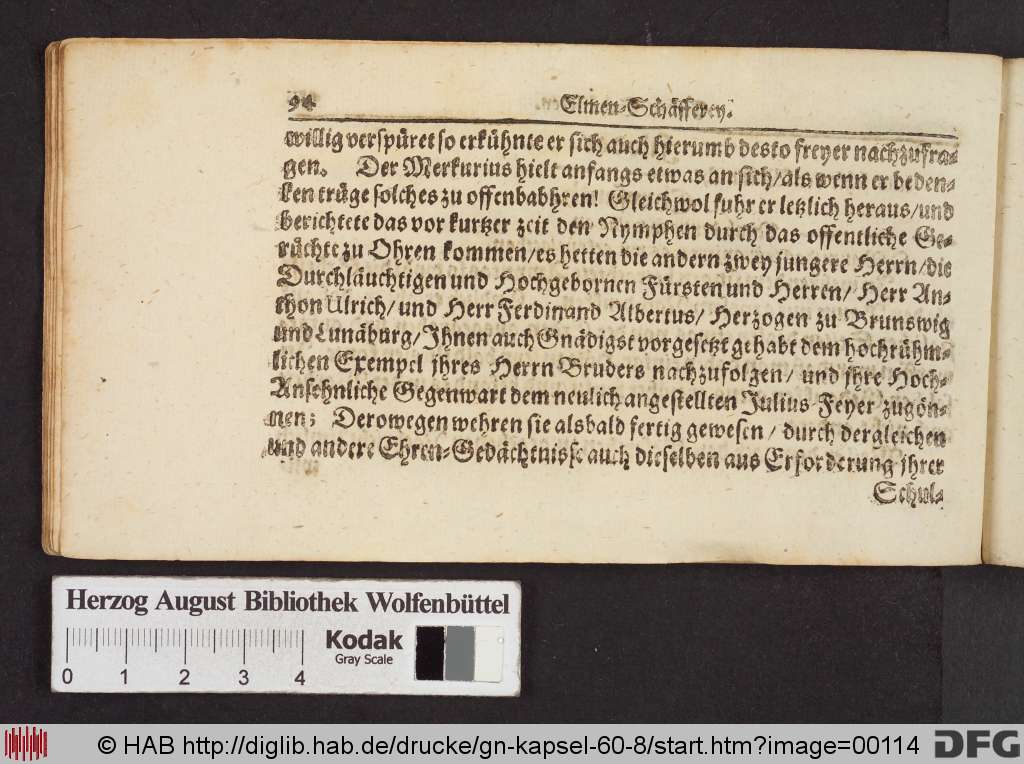 94 Elmen-Schäfferey.
willig verspüret so erkühnte er sich auch hierumb desto freyer nachzufra-
gen. Der Merkurius hielt anfangs etwas an sich/als wenn er beden-
ken trüge solches zu offenbabhren! Gleichwol fuhr er letzlich heraus/und
berichtete das vor kurtzer zeit den Nymphen durch das offentliche Ge-
rüchte zu Ohren kommen/es hetten die andern zwey jüngere Herrn/die
Durchläuchtigen und Hochgebornen Fürsten und Herren/ Herr An-
thon Ulrich/ und Herr Ferdinand Albertus/ Herzogen zu Brunswig
und Lunäburg/Ihnen auch Gnädigst vorgesetzt gehabt dem hochrühm-
lichen Exempel jhres Herrn Bruders nachzufolgen/ und jhre Hoch-
Ansehnliche Gegenwart dem neulich angestellten Julius-Feyer zugön-
nen; Derowegen wehren sie alsbald fertig gewesen/ durch dergleichen
und andere Ehren-Gedächtnisse auch dieselben aus Erforderung jhrer
Schul-
Herzog August Bibliothek Wolfenbüttel
0 1 2 3 4
Kodak
Gray Scale
© HAB http://diglib.hab.de/drucke/gn-kapsel-60-8/start.htm?image=00114
DFG